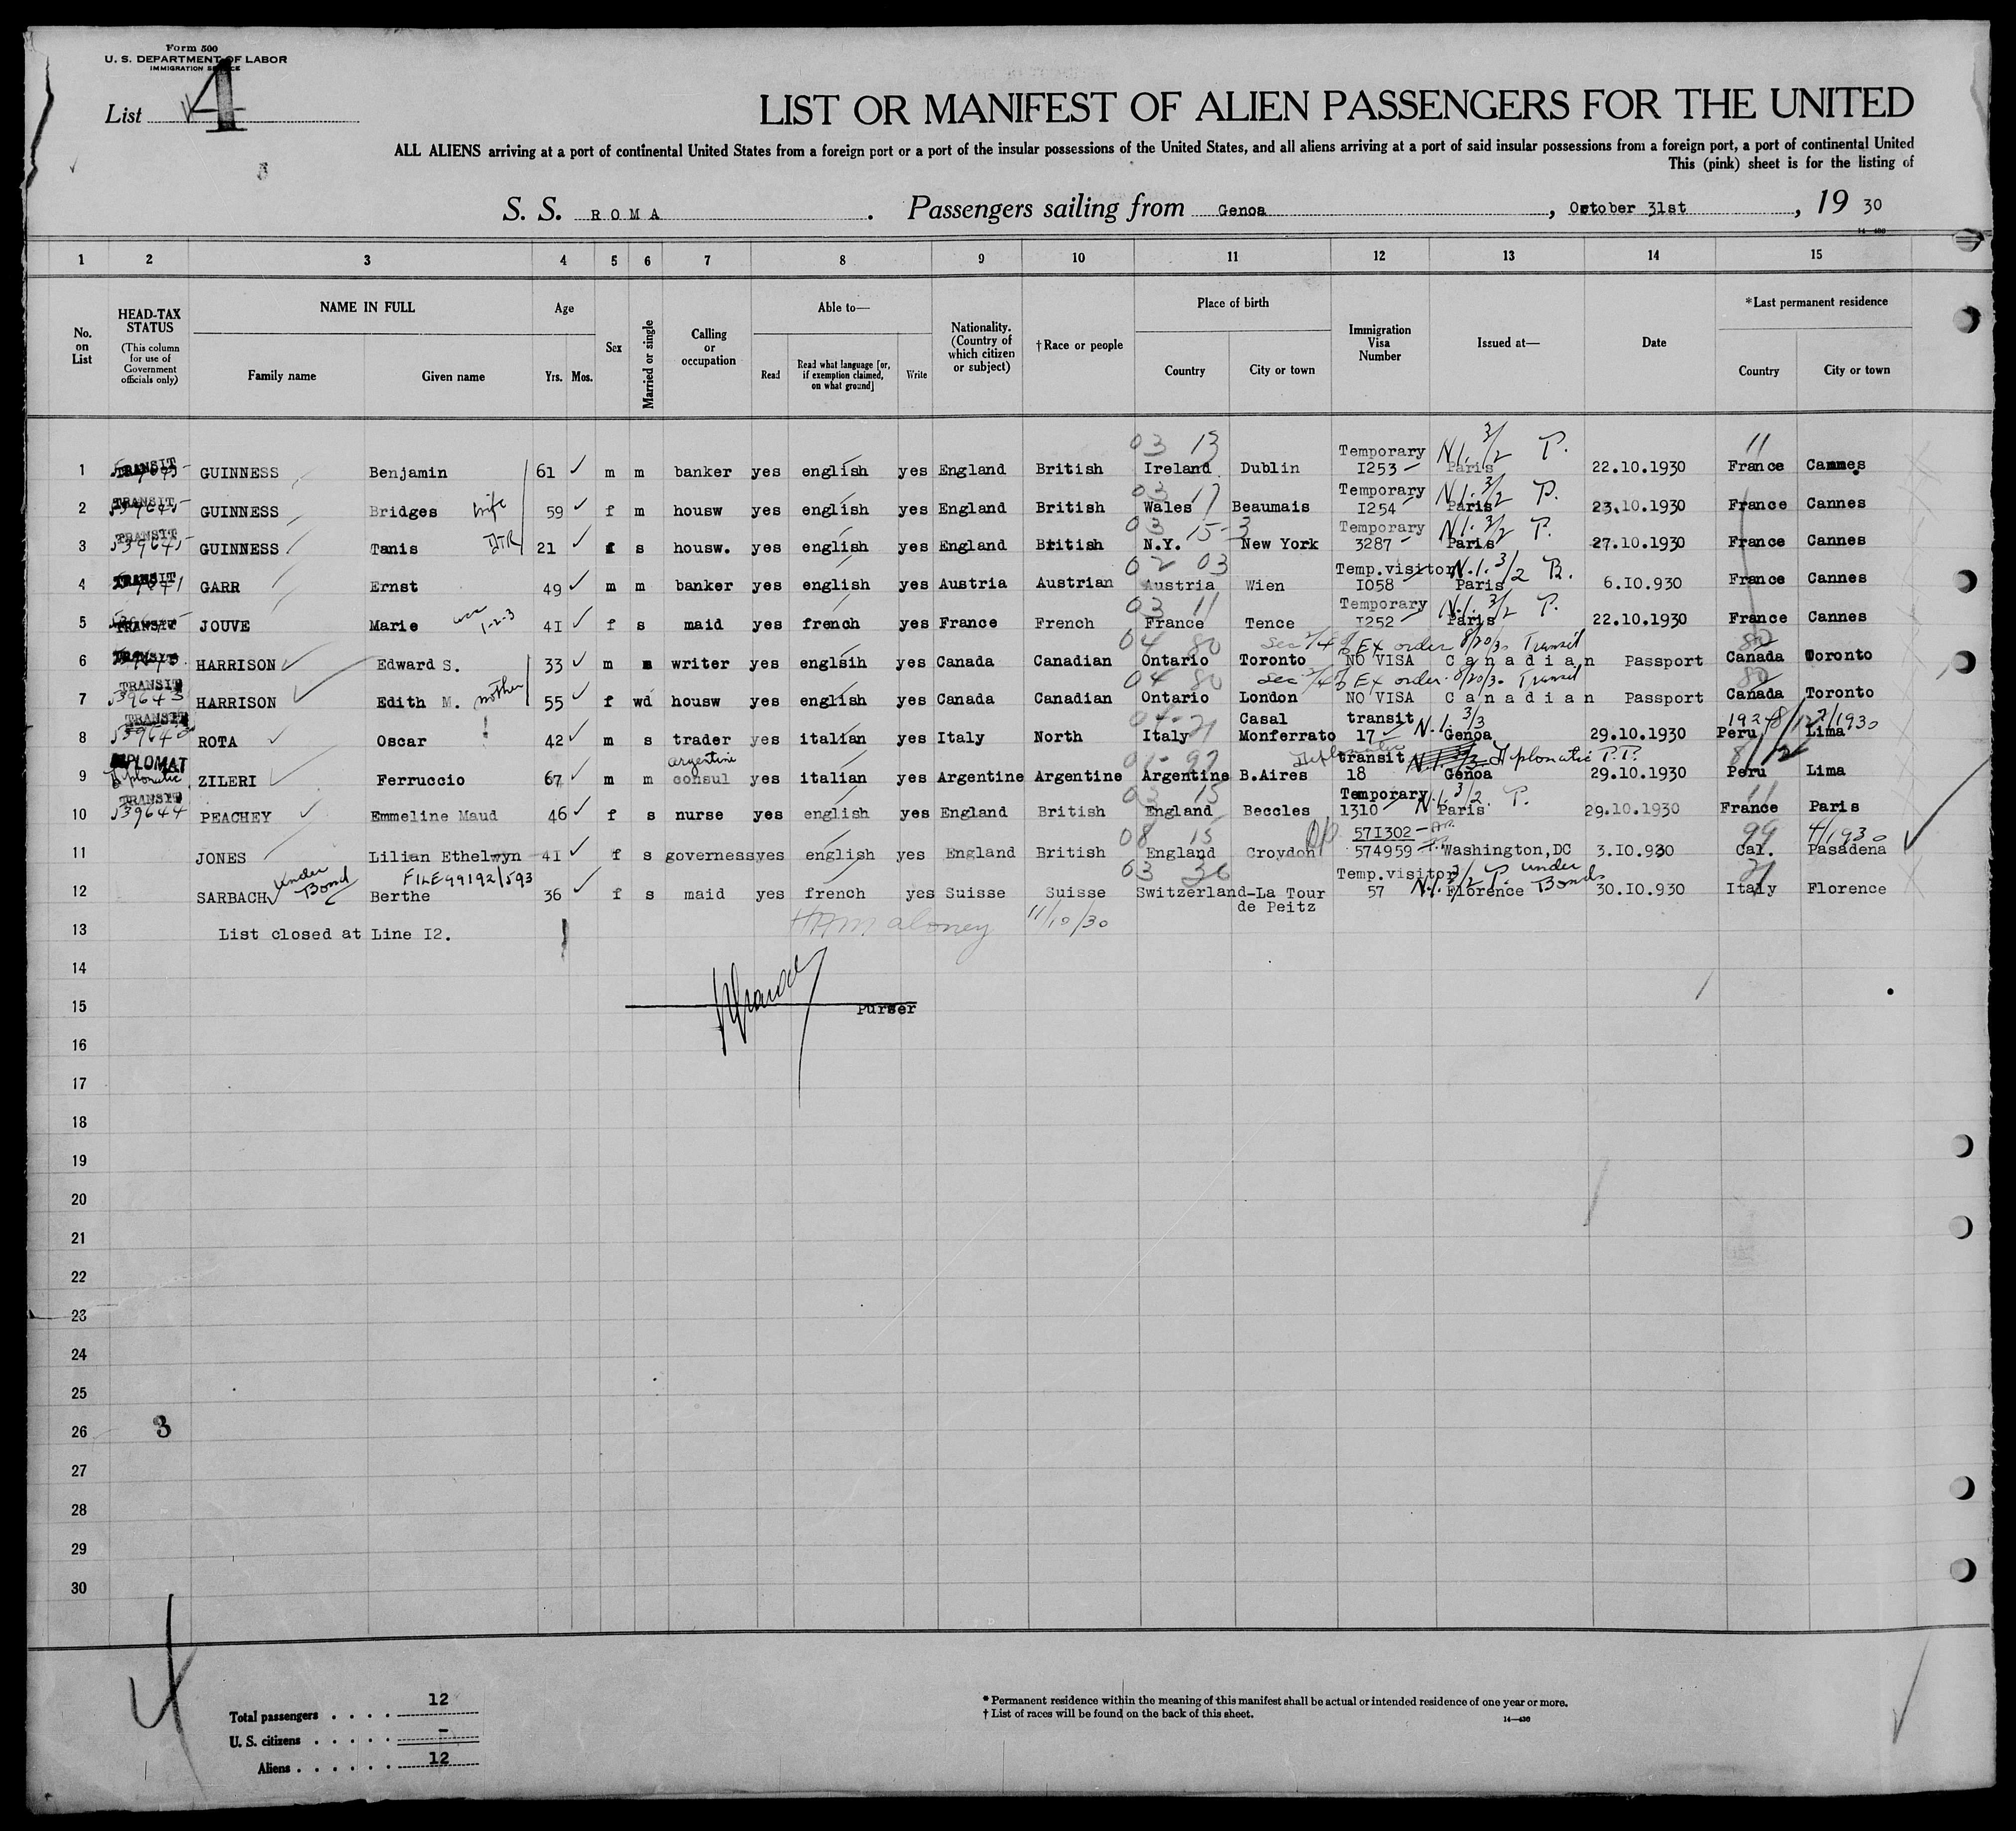 Form 500
U. S. DEPARTMENT OF LABOR
IMMIGRATION SERVICE
List 4
LIST OR MANIFEST OF ALIEN PASSENGERS FOR THE UNITED
ALL ALIENS arriving at a port of continental United States from a foreign port or a port of the insular possessions of the United States, and all aliens arriving at a port of said insular possessions from a foreign port, a port of continental United
This (pink) sheet is for the listing of
S. S. ROMA . Passengers sailing from Genoa, October 31st, 19 30
1 2 3 4 5 6 7 8 9 10 11 12 13 14 15
No. on List
HEAD-TAX STATUS (This column for use of Government officials only)
NAME IN FULL Family name Given name
Age Yrs. Mos.
Sex
Married or single
Calling or occupation
Able to— Read Read what language [or, if exemption claimed, on what ground] Write
Nationality. (Country of which citizen or subject)
†Race or people
Place of birth Country City or town
Immigration Visa Number
Issued at—
Date
*Last permanent residence Country City or town
03 13 Temporary N.I. 3/2 P. 11
1 TRANSIT GUINNESS Benjamin 61 m m banker yes english yes England British Ireland Dublin I253 Paris 22.10.1930 France Cannes
03 17 Temporary N.I. 3/2 P.
2 TRANSIT 539645 GUINNESS Bridges wife 59 f m housw yes english yes England British Wales Beaumais I254 Paris 23.10.1930 France Cannes
03 15-3 Temporary N.I. 3/2 P.
3 TRANSIT 539645 GUINNESS Tanis DTR 21 f s housw. yes english yes England British N.Y. New York 3287 Paris 27.10.1930 France Cannes
02 03 Temp.visitor N.I. 3/2 P.
4 TRANSIT GARR Ernst 49 m m banker yes english yes Austria Austrian Austria Wien I058 Paris 6.I0.930 France Cannes
03 11 Temporary N.I. 3/2 P.
5 TRANSIT JOUVE Marie 1-2-3 4I f s maid yes french yes France French France Tence I252 Paris 22.10.1930 France Cannes
04 80 Ex order 8/20/30 Transit 80
6 TRANSIT HARRISON Edward S. 33 m s writer yes englsih yes Canada Canadian Ontario Toronto NO VISA Canadian Passport Canada Toronto
04 80 Ex order 8/20/30 Transit 80
7 TRANSIT 539643 HARRISON Edith M. mother 55 f wd housw yes english yes Canada Canadian Ontario London NO VISA Canadian Passport Canada Toronto
Casal transit N.I. 3/3
8 TRANSIT ROTA Oscar 42 m s trader yes italian yes Italy North Italy Monferrato 17 Genoa 29.10.1930 Peru Lima
argentine Diplomatic transit Diplomatic P.P.
9 DIPLOMAT Diplomatic ZILERI Ferruccio 67 m m consul yes italian yes Argentine Argentine Argentine B.Aires 18 Genoa 29.10.1930 Peru Lima
03 15 Temporary N.I. 3/2 P. 11
10 TRANSIT 539644 PEACHEY Emmeline Maud 46 f s nurse yes english yes England British England Beccles 1310 Paris 29.10.1930 France Paris
08 15 57I302 99 4/1930
11 JONES Lilian Ethelwyn 4I f s governess yes english yes England British England Croydon 574959 Washington,DC 3.I0.930 Cal. Pasadena
under Bond FILE 99192/593 03 36 Temp.visitor N.I. 3/2 P. under Bond 21
12 SARBACH Berthe 36 f s maid yes french yes Suisse Suisse Switzerland-La Tour de Peitz 57 Florence 30.I0.930 Italy Florence
13 List closed at Line I2. HRMaloney 11/10/30
14
15 Purser
16
17
18
19
20
21
22
23
24
25
26 3
27
28
29
30
Total passengers . . . . 12
U. S. citizens . . . . . -
Aliens . . . . . . 12
* Permanent residence within the meaning of this manifest shall be actual or intended residence of one year or more.
† List of races will be found on the back of this sheet.
14—430